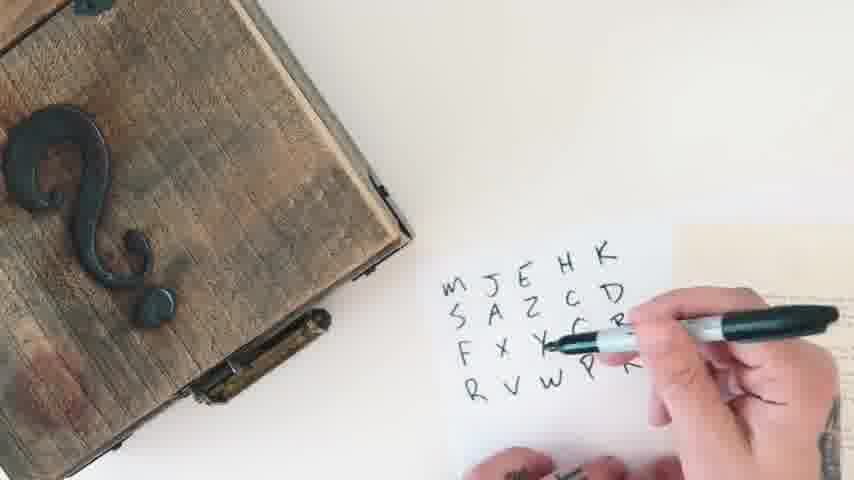 M J E H K
S A Z C D
F X Y
R V W P